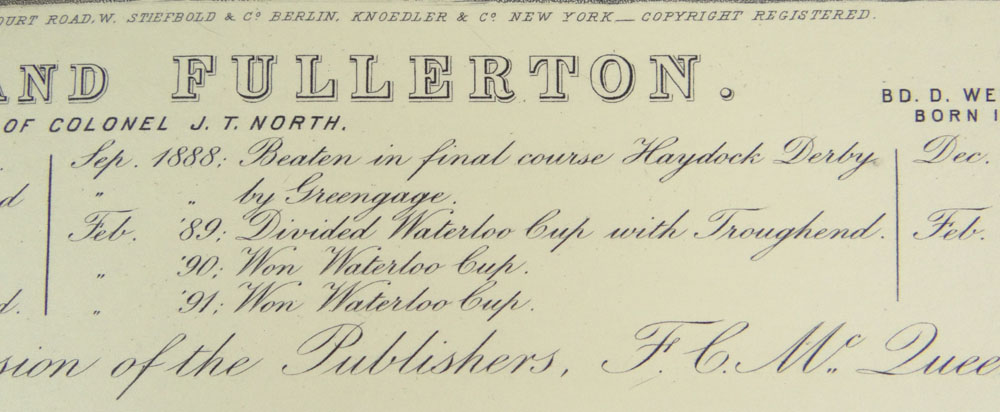 OURT ROAD, W. STIEFBOLD & Cº BERLIN, KNOEDLER & Cº NEW YORK — COPYRIGHT REGISTERED.
AND FULLERTON.
OF COLONEL J. T. NORTH.
BD. D. WE
BORN I
Sep. 1888; Beaten in final course Haydock Derby
d " " by Greengage.
Feb. '89; Divided Waterloo Cup with Troughend.
" '90; Won Waterloo Cup.
d. " '91; Won Waterloo Cup.
Dec.
Feb.
sion of the Publishers, F. C. Mᶜ Quee